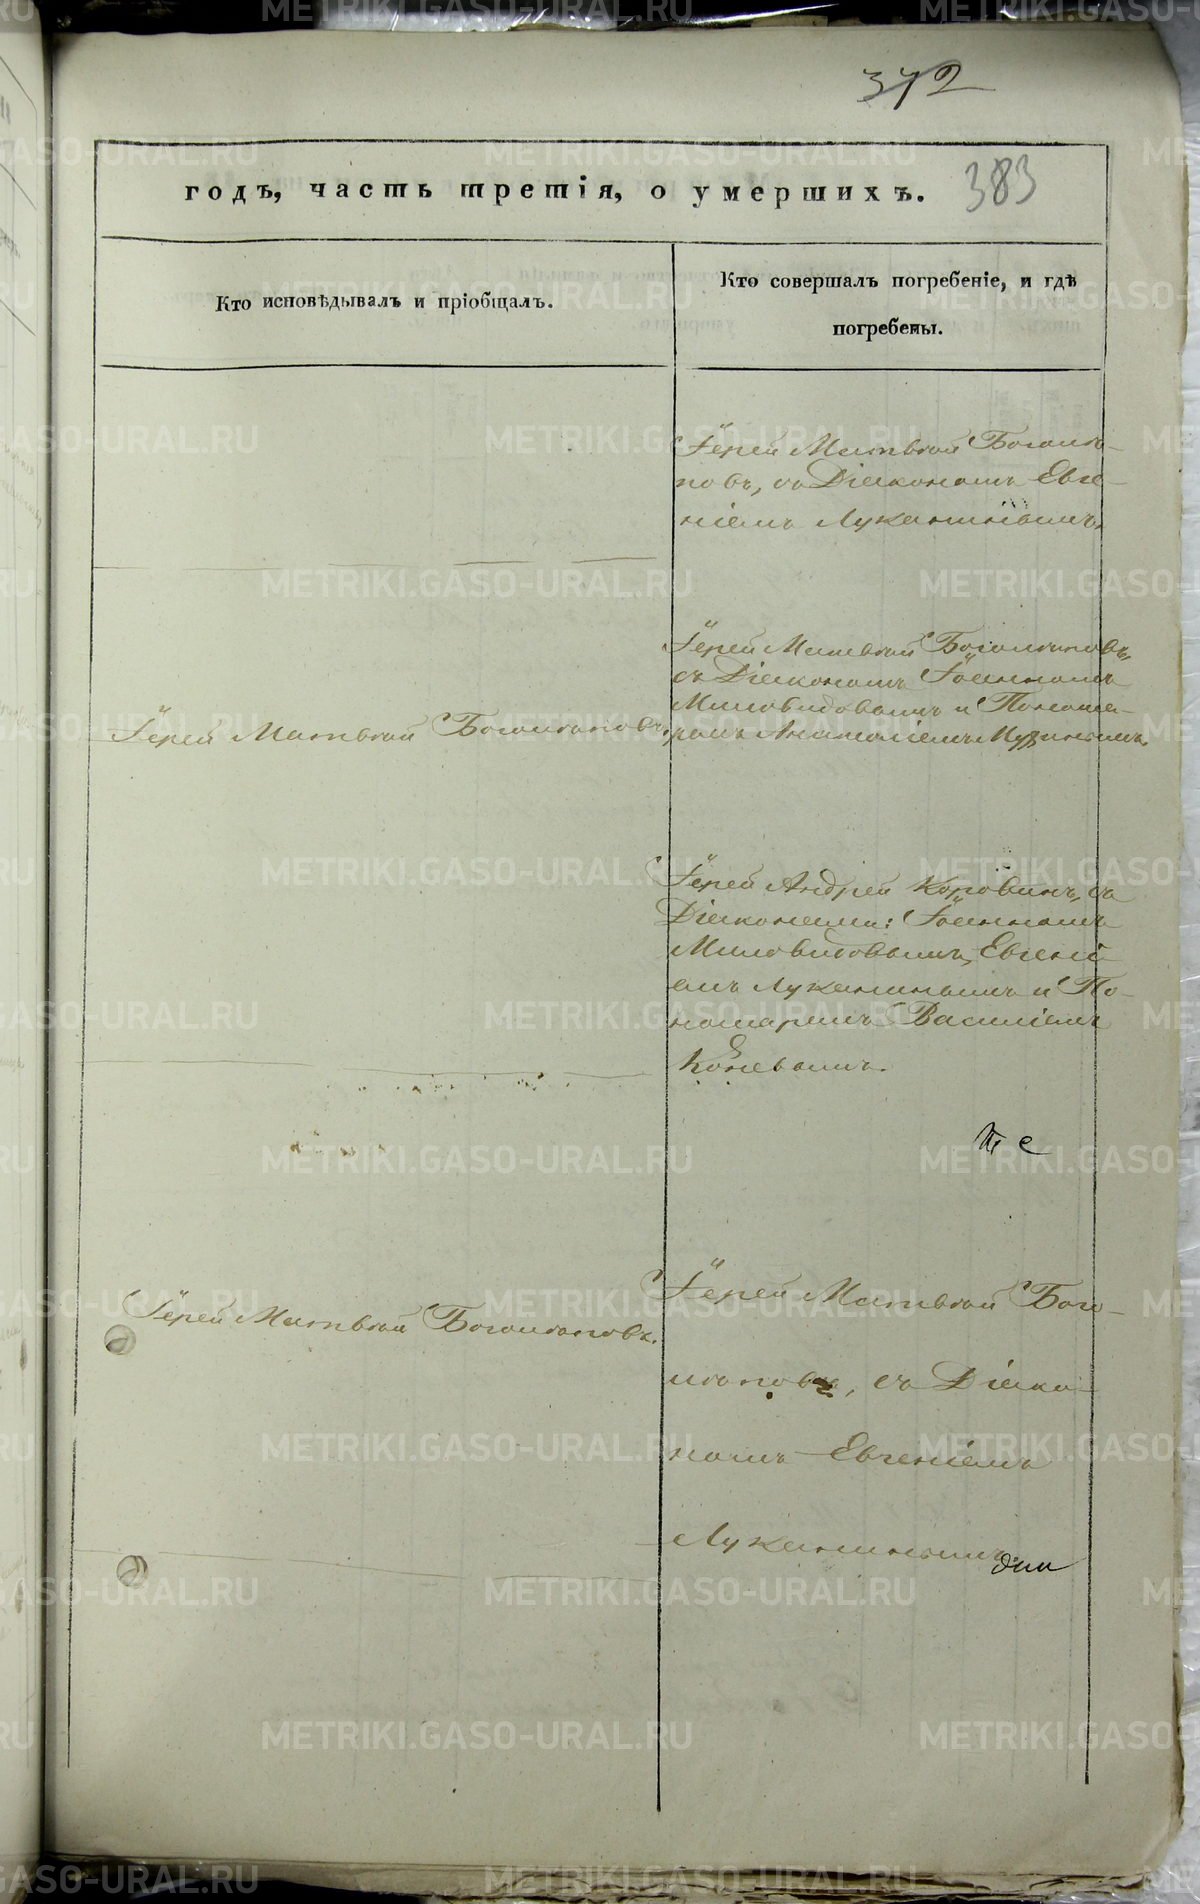 372
383
годъ, часть третія, о умершихъ.
Кто исповѣдывалъ и пріобщалъ.
Кто совершалъ погребеніе, и гдѣ
погребены.
Іерей Матвѣй Боголѣ-
повъ, съ Діакономъ Евге-
ніемъ Луканинымъ.
Іерей Матвѣй Боголѣповъ.
Іерей Матвѣй Боголѣповъ,
съ Діакономъ Іоанномъ
Миловидовымъ и Понома-
ремъ Анатоліемъ
Іерей Андрей Коровинъ, съ
Діаконами: Іоанномъ
Миловидовымъ, Евгені-
емъ Луканинымъ и По-
номаремъ Василіемъ
Коневымъ.
Іерей Матвѣй Боголѣповъ.
Іерей Матвѣй Бого-
лѣповъ, съ Діако-
номъ Евгеніемъ
Луканинымъ.
METRIKI.GASO-URAL.RU